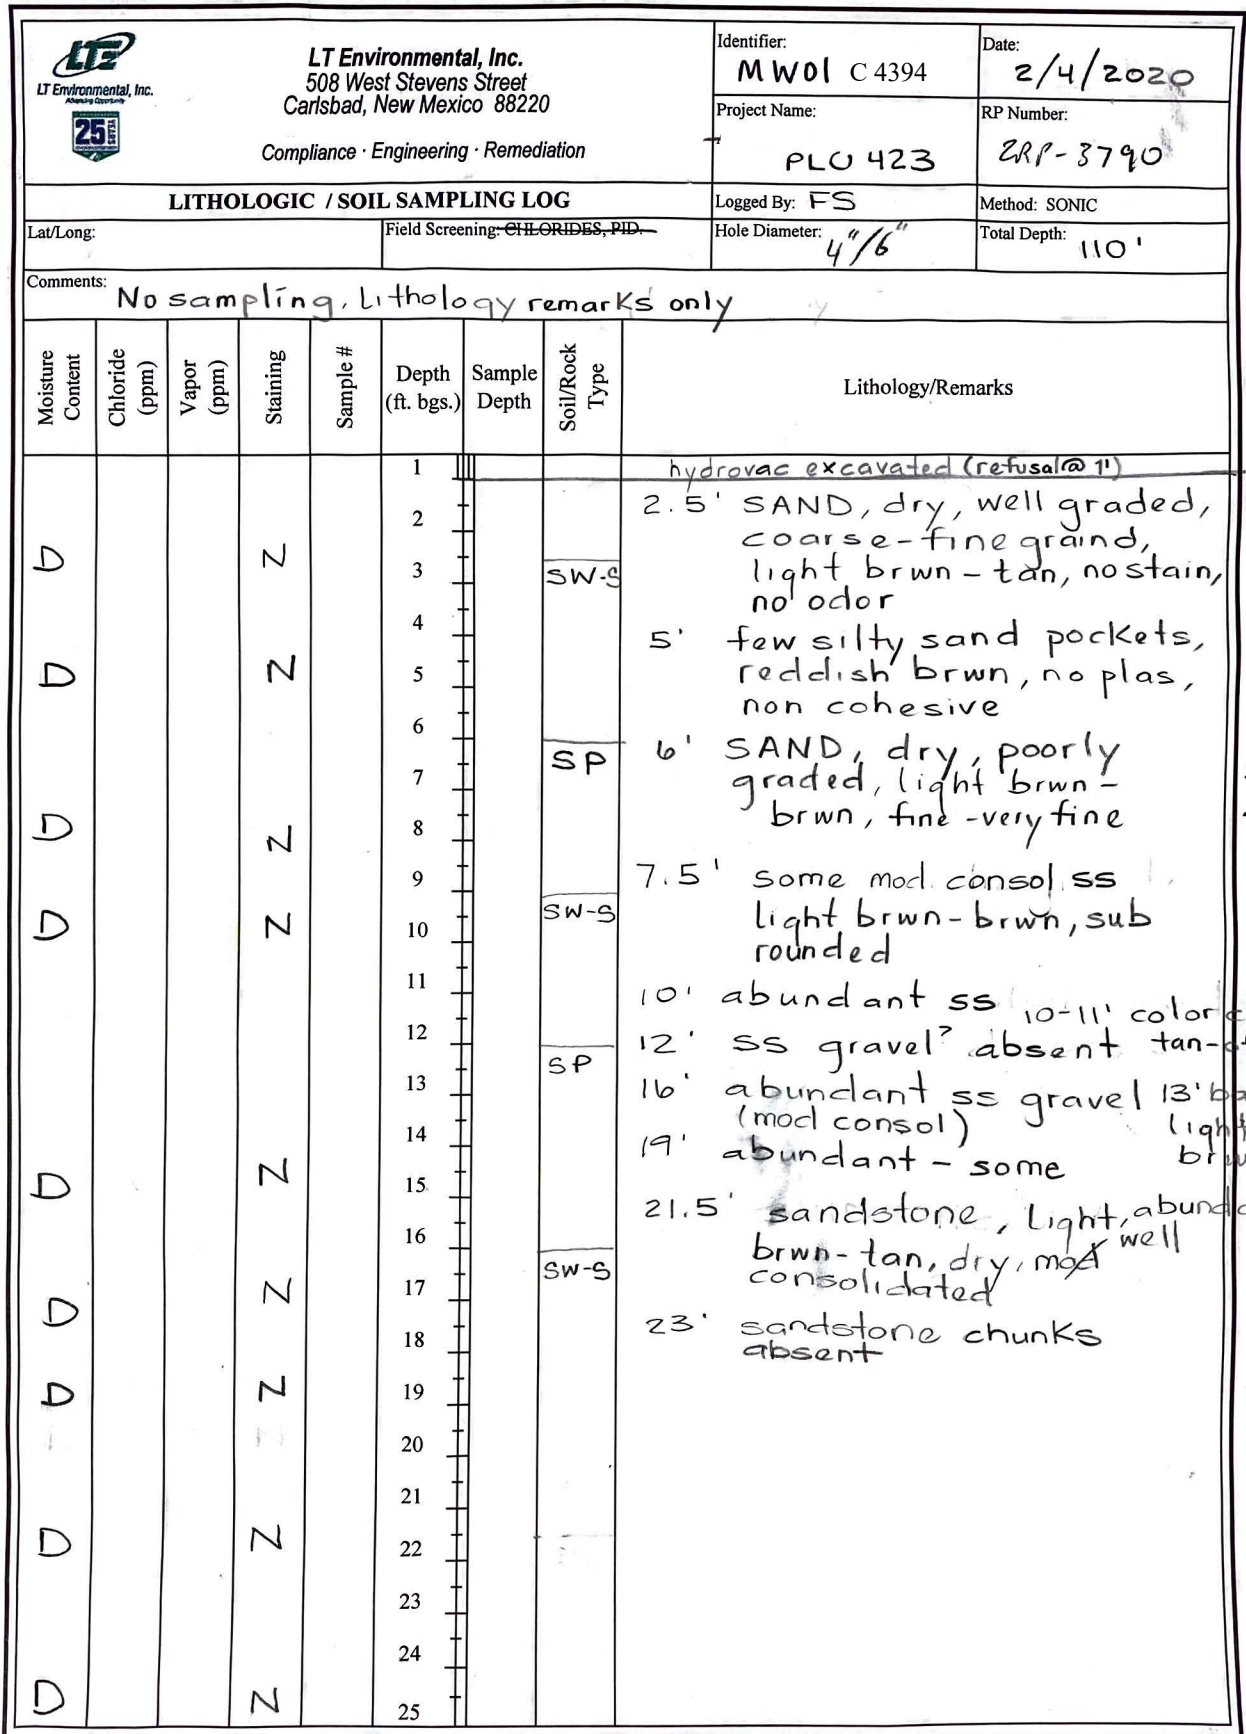 LTE
LT Environmental, Inc.
Advancing Opportunity
25 YEARS
LT Environmental, Inc.
508 West Stevens Street
Carlsbad, New Mexico 88220
Compliance · Engineering · Remediation
Identifier:
MW01 C 4394
Date:
2/4/2020
Project Name:
PLU 423
RP Number:
2RP-3790
LITHOLOGIC / SOIL SAMPLING LOG
Logged By: FS
Method: SONIC
Lat/Long:
Field Screening: CHLORIDES, PID.
Hole Diameter: 4"/6"
Total Depth: 110'
Comments: No sampling, Lithology remarks only
Moisture Content
Chloride (ppm)
Vapor (ppm)
Staining
Sample #
Depth (ft. bgs.)
Sample Depth
Soil/Rock Type
Lithology/Remarks
1 hydrovac excavated (refusal@ 1')
2 2.5' SAND, dry, well graded,
coarse-fine graind,
D N 3 SW-S light brwn - tan, no stain,
no odor
4 5' few silty sand pockets,
D N 5 reddish brwn, no plas,
non cohesive
6
SP 6' SAND, dry, poorly
7 graded, light brwn -
D N 8 brwn, fine - very fine
9 7.5' some mod. consol. ss
D N 10 SW-S light brwn-brwn, sub
rounded
11 10' abundant ss 10-11' color
12 12' ss gravel? absent tan-
13 SP 16' abundant ss gravel 13'
(mod consol) light
14 19' abundant - some
D N 15 21.5' sandstone, Light,
16 brwn-tan, dry, mod well
SW-S consolidated
D N 17
18 23' sandstone chunks
absent
D N 19
20
21
D N 22
23
24
D N 25